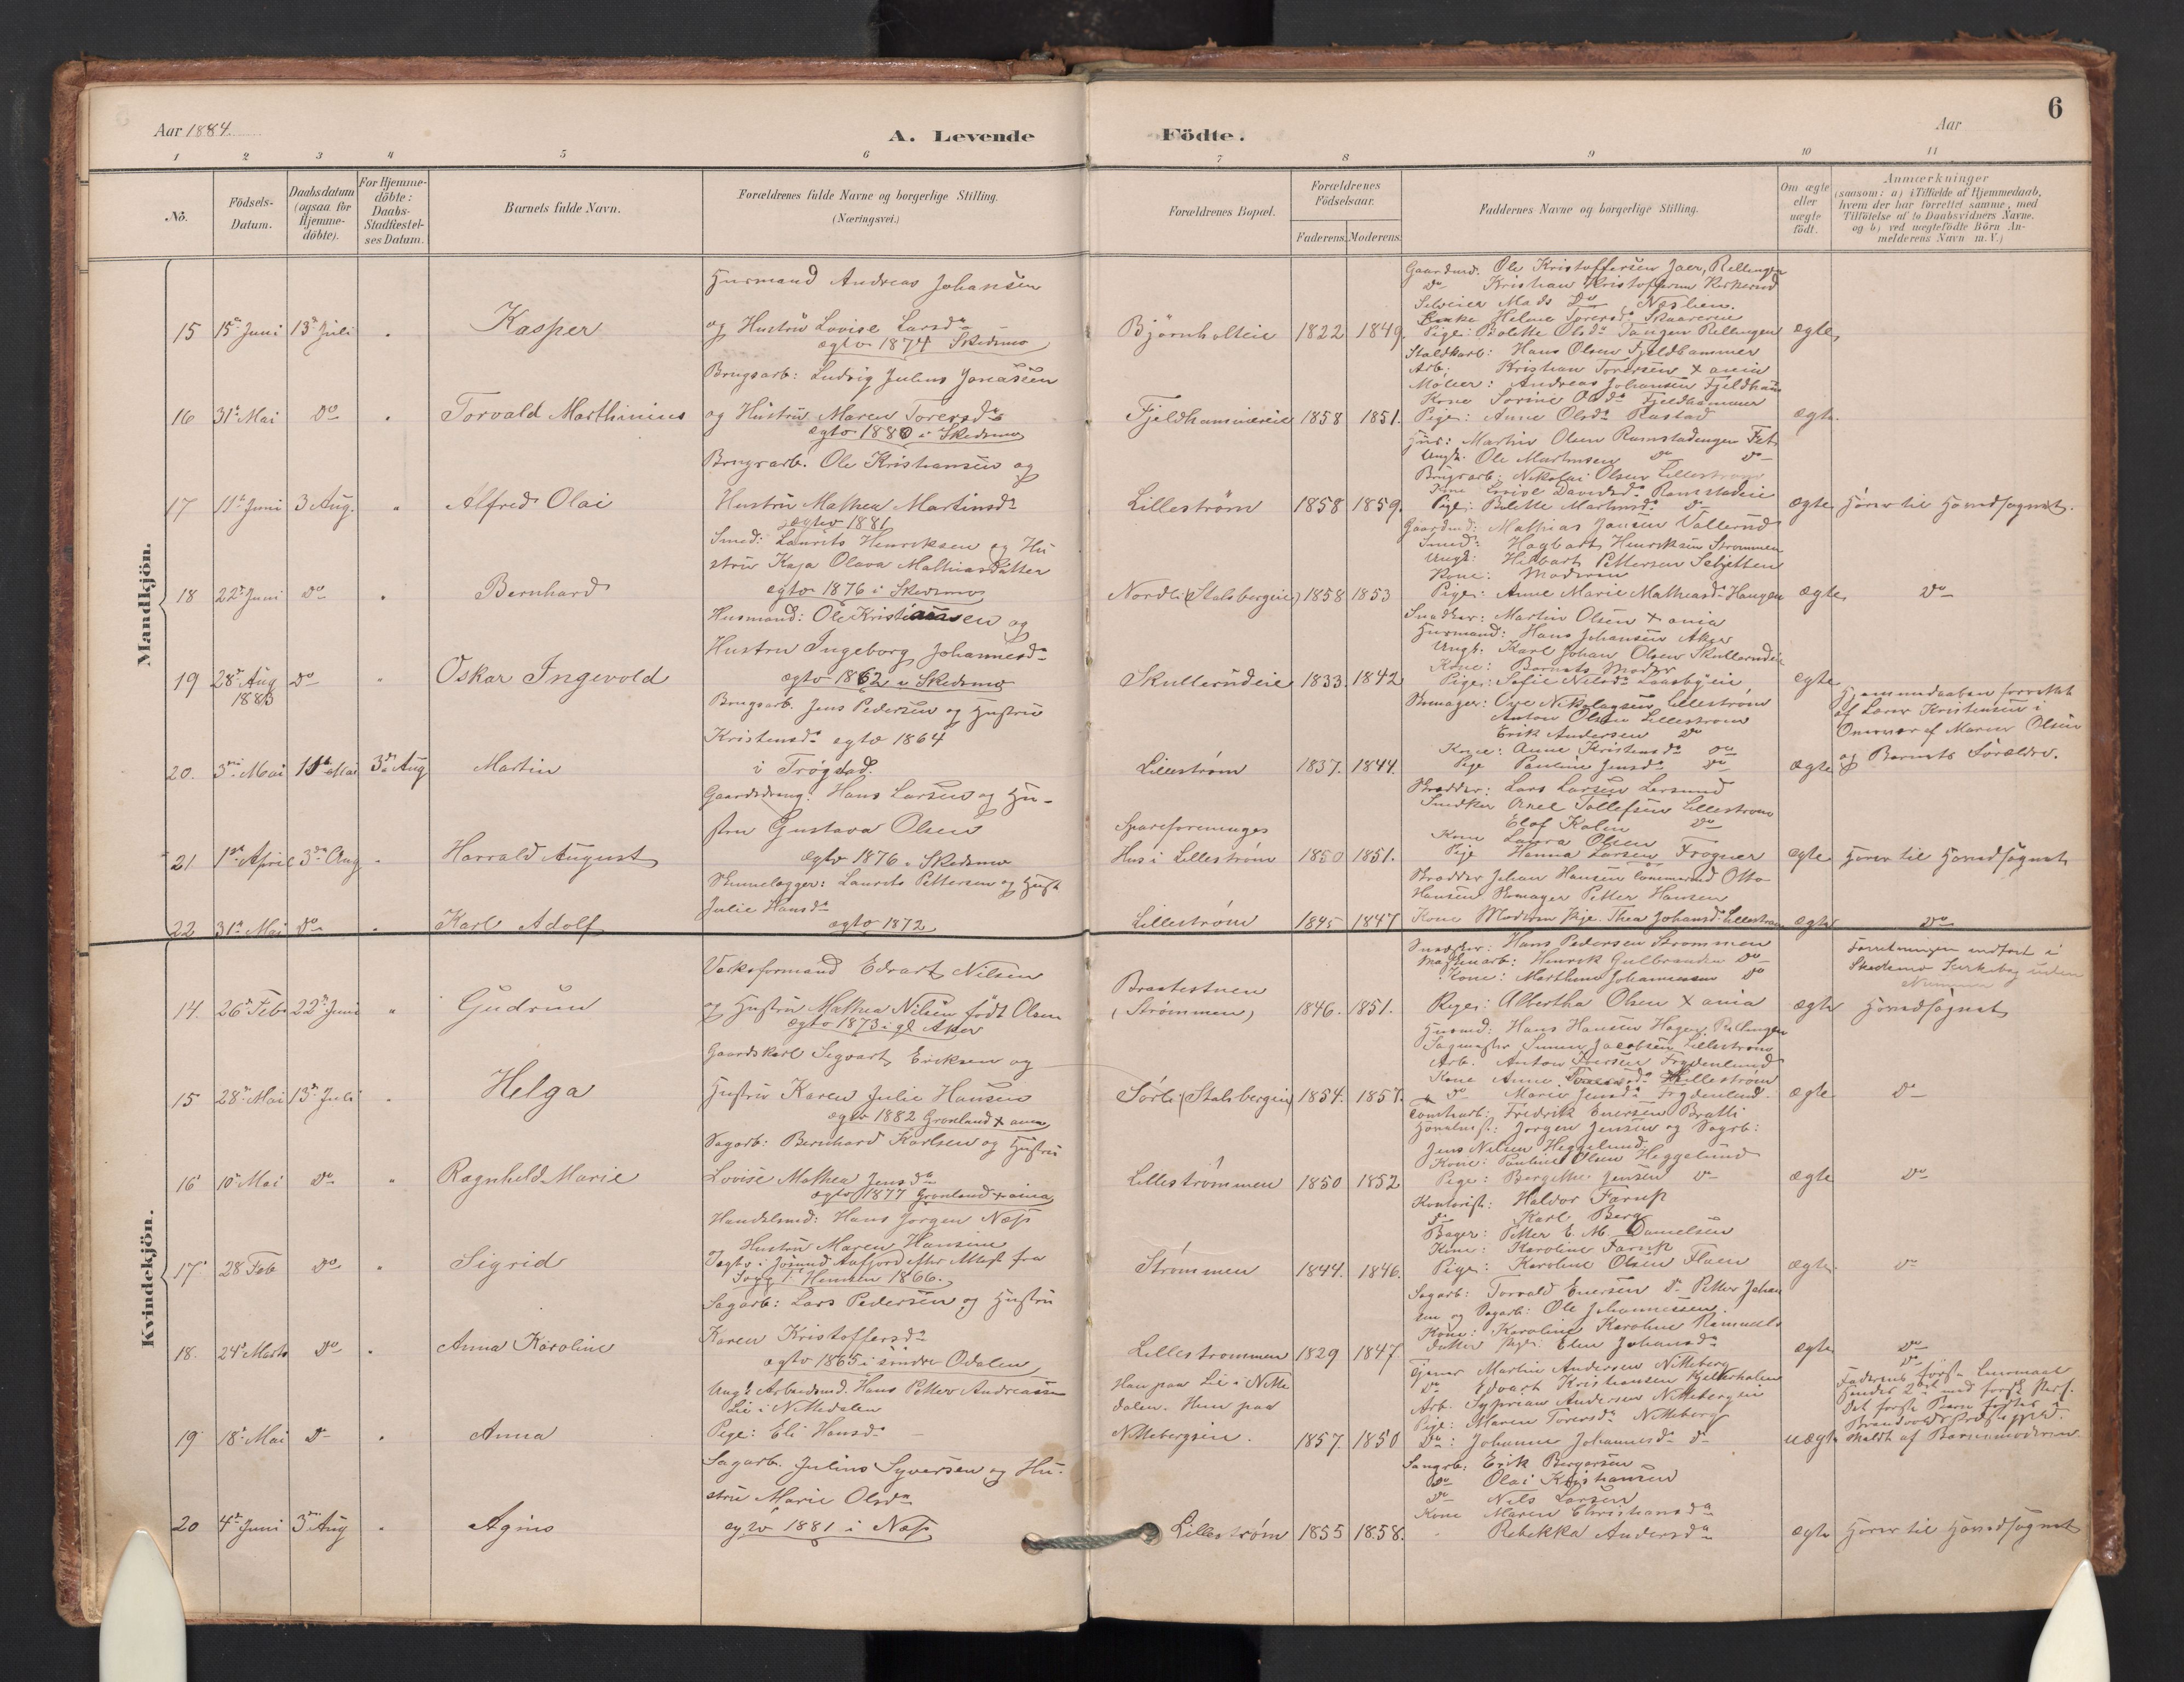 Aar 1884.
A. Levende Födte.
Aar
6
1 2 3 4 5 6 7 8 9 10 11
No.
Födsels-Datum.
Daabsdatum (ogsaa for Hjemme-döbte).
For Hjemme-döbte: Daabs-Stadfæstel-ses Datum.
Barnets fulde Navn.
Forældrenes fulde Navne og borgerlige Stilling. (Næringsvei.)
Forældrenes Bopæl.
Forældrenes Födselsaar.
Faderens. Moderens.
Faddernes Navne og borgerlige Stilling.
Om ægte eller uægte födt.
Anmærkninger
(saasom: a) i Tilfælde af Hjemmedaab,
hvem der har forrettet samme, med
Tilföielse af to Daabsvidners Navne,
og b) ved uægtefödte Börn An-
melderens Navn m. V.)
Mandkjön.
15 15de Juni 13de Juli " Kasper
Husmand Andreas Johansen
og Hustru Lovise Larsda
ægtv 1874 Skedsmo
Bjørnholteie 1822 1849.
Gaardmd. Ole Kristoffersen Jaer, Rellingen
Do Kristian Kristoffersen Kirkerud
Selveier Mads Do Næslien.
Enke Helene Torersda Skaareneie
Pige: Bolette Olsda Tangen Rellingen
ægte
16 31te Mai Do " Torvald Marthinius
Brugsarb: Ludvig Julius Jonassen
og Hustru Maren Torersda
ægtv 1880 i Skedsmo
Fjeldhammereie 1858 1851.
Staldkarl: Hans Olsen Fjeldhammer
Arb. Kristian Torersen x ania
Møller: Andreas Johansen Fjeldham
Kone Sorine Olsda Fjeldhammer
Pige: Anne Olsda Rustad
ægte
17 11te Juni 3 Aug. " Alfred Olai
Brugsarb. Ole Kristiansen og
Hustru Mathea Martinsda
ægtev 1881
Lillestrøm 1858 1859.
Hus: Martin Olsen Ramstadengen Fet
Ungk. Ole Martinsen Do Do
Brugsarb. Nikolai Olsen Lillestrøm
Kone Lovise Davidsda Ramstadeie
Pige: Bolette Martinsda Do
ægte Hører til Hovedsognet.
18 22de Juni Do " Bernhard
Smed: Laurits Henriksen og Hu
stru Kaja Olava Mathiasdatter
ægtv 1876 i Skedsmo
Nordli (Stalsbergeie) 1858 1853
Gaardmd: Mathias Jansen Vallerud
Smed: Hagbart Henriksen Strømmen
Ungk: Hilbart Pettersen Skjetten
Kone: Moderen
Pige: Anne Marie Mathiasda Haugen
ægte Do
19 28de Aug 1883 Do " Oskar Ingevold
Husmand: Ole Kristiansen og
Hustru Ingeborg Johannesda
ægtv 1862 i Skedsmo
Skullerudeie 1833. 1842
Snedker: Martin Olsen x ania
Husmand: Hans Johansen Aker
Ungk. Karl Johan Olsen Skullerudeie
Kone: Barnets Moder
Pige: Sofie Nilsda Laasbyeie
ægte
20. 3die Mai 11te Mai 3die Aug Martin
Brugsarb. Jens Pedersen og Hustru
Kristensda ægtv 1864
i Trøgstad.
Lillestrøm 1837. 1844.
Skomager: Ove Nikolaysen Lillestrøm
Anton Olsen Lillestrøm
Erik Andersen Do
Kone: Anne Kristensda Do
Pige Pauline Jensda Do
ægte
Hjemmedaaben forrettet
af Lærer Kristensen i
Overvær af Maren Olsen
og Barnets Forældre.
21 1ste April 3die Aug " Harrald August
Gaardsdreng: Hans Larsen og Hu-
stru Gustava Olsen
ægtv 1876 i Skedsmo
Spareforeninges
Hus i Lillestrøm 1850 1851.
Skrædder: Lars Larsen Lersund
Snedker Axel Tollefsen Lillestrøm
Elof Kolen Do
Kone Laura Olsen
Pige Hanna Larsen Frogner
ægte Hører til Hovedsognet
22 31te Mai Do " Karl Adolf
Skinnelægger: Laurits Pettersen og Hust
Julie Hansda
ægtv 1872
Lillestrøm 1845 1847
Skrædder Johan Hansen Otto
Hansen Skomager Petter Hansen
Kone Moderen Pige Thea Johansda Lillestrøm
ægte Do
Kvindekjön.
14. 26de Feb 22de Juni " Gudrun
Værksformand Edvart Nilsen
og Hustru Mathea Nilsen født Olsen
ægtv 1873 i gl Aker
Braatestuen
(Strømmen) 1846. 1851.
Snedker: Hans Pedersen Strømmen
Maskinarb: Henrik Gulbrandsen Do
Kone: Marthine Johannessen Do
Pige: Albertha Olsen x ania
ægte
Forretningen indført i
Skedsmo Kirkebog uden
Nummer
Hovedsognet
15 28de Mai 13de Juli " Helga
Gaardskarl Sigvart Eriksen og
Hustru Karen Julie Hansen
ægtv 1882 Grønland x ania
Sørli (Stalsbergeie) 1854. 1857.
Husmd: Hans Hansen Hagen, Rellingen
Sagmester Simen Jacobsen Lillestrøm
Arb. Anton Iversen Frydenlund
Kone Anne Lillestrøm
Do Marie Jensda Frydenlund.
ægte Do
16 10de Mai Do " Ragnhild Marie
Sagarb: Bernhard Karlsen og Hustru
Lovise Mathea Jensda
ægtv 1877 Grønland x ania
Lillestrømmen 1850 1852
Tomtearb: Fredrik Enersen Bratli
Jørgen Jensen og Sagarb:
Jens Nilsen Heggelund
Kone: Pauline Olsen Heggelund
Pige: Bergithe Jensen Do
ægte Do
17 28 Feb Do " Sigrid
Handelsmd: Hans Jørgen Næss
Hustru Maren Hansine
Aafjord efter Attest fra
Sogp. F. Hennen 1866.
Strømmen 1844. 1846.
Kontorist: Haldor Farup
Do Karl Berg
Bager: Petter E. M. Danielsen
Kone: Karoline Farup
Pige: Karoline Olsen Floen
ægte Do
18. 24de Marts Do " Anna Karoline
Sagarb: Lars Pedersen og Hustru
Karen Kristoffersda
ægtv 1865 i søndre Odalen
Lillestrommen 1829 1847
Sagarb: Torvald Enersen Do Petter Johan
sen og Sagarb: Ole Johannessen.
Kone: Karoline Karoline
datter Pige: Elen Johansda
ægte Do
19 18de Mai Do " Anna
Ungk. Arbeidsmd. Hans Petter Andreassen
Lie i Nittedalen
Pige: Eli Hansda
Han paa Lie i Nitte
dalen. Hun paa
Nittebergeie. 1857. 1850
Tjener Martin Andersen Nitteberg
Do Edvart Kristiansen Kjellerholen
Arb. Syprian Andersen Nittebergeie
Pige: Maren Torersda Nitteberg
Do: Johanne Johannesda Do
uægte
Do
Faderens første Leiermaal
Hendes 2det med forsk. Pers.
Det første Barn fødtes i
Brandvolds Præstegjeld.
Meldt af Barnemoderen.
20 4de Juni 3die Aug " Agnes
Sagarb. Julius Syversen og Hu-
stru Marie Olsda
ægtv 1881 i Næs
Lillestrøm 1855 1858.
Sagarb: Erik Bergersen
Do Olai Kristiansen
Do Nils Larsen
Kone Maren Christiansda
Rebekka Andersda
ægte Hører til Hovedsognet